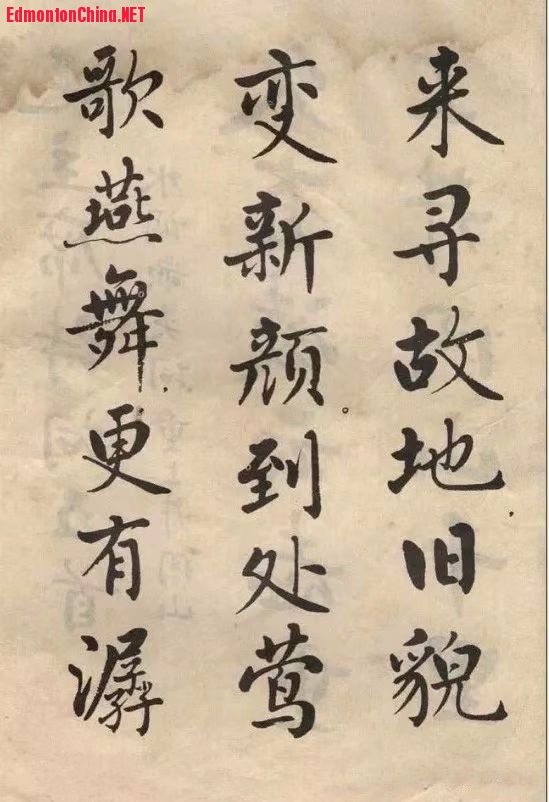 EdmontonChina.NET
来寻故地旧貌
变新颜。到处莺
歌燕舞，更有潺